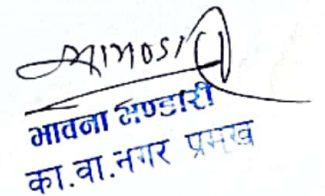 भावना भण्डारी
का.वा.नगर प्रमुख